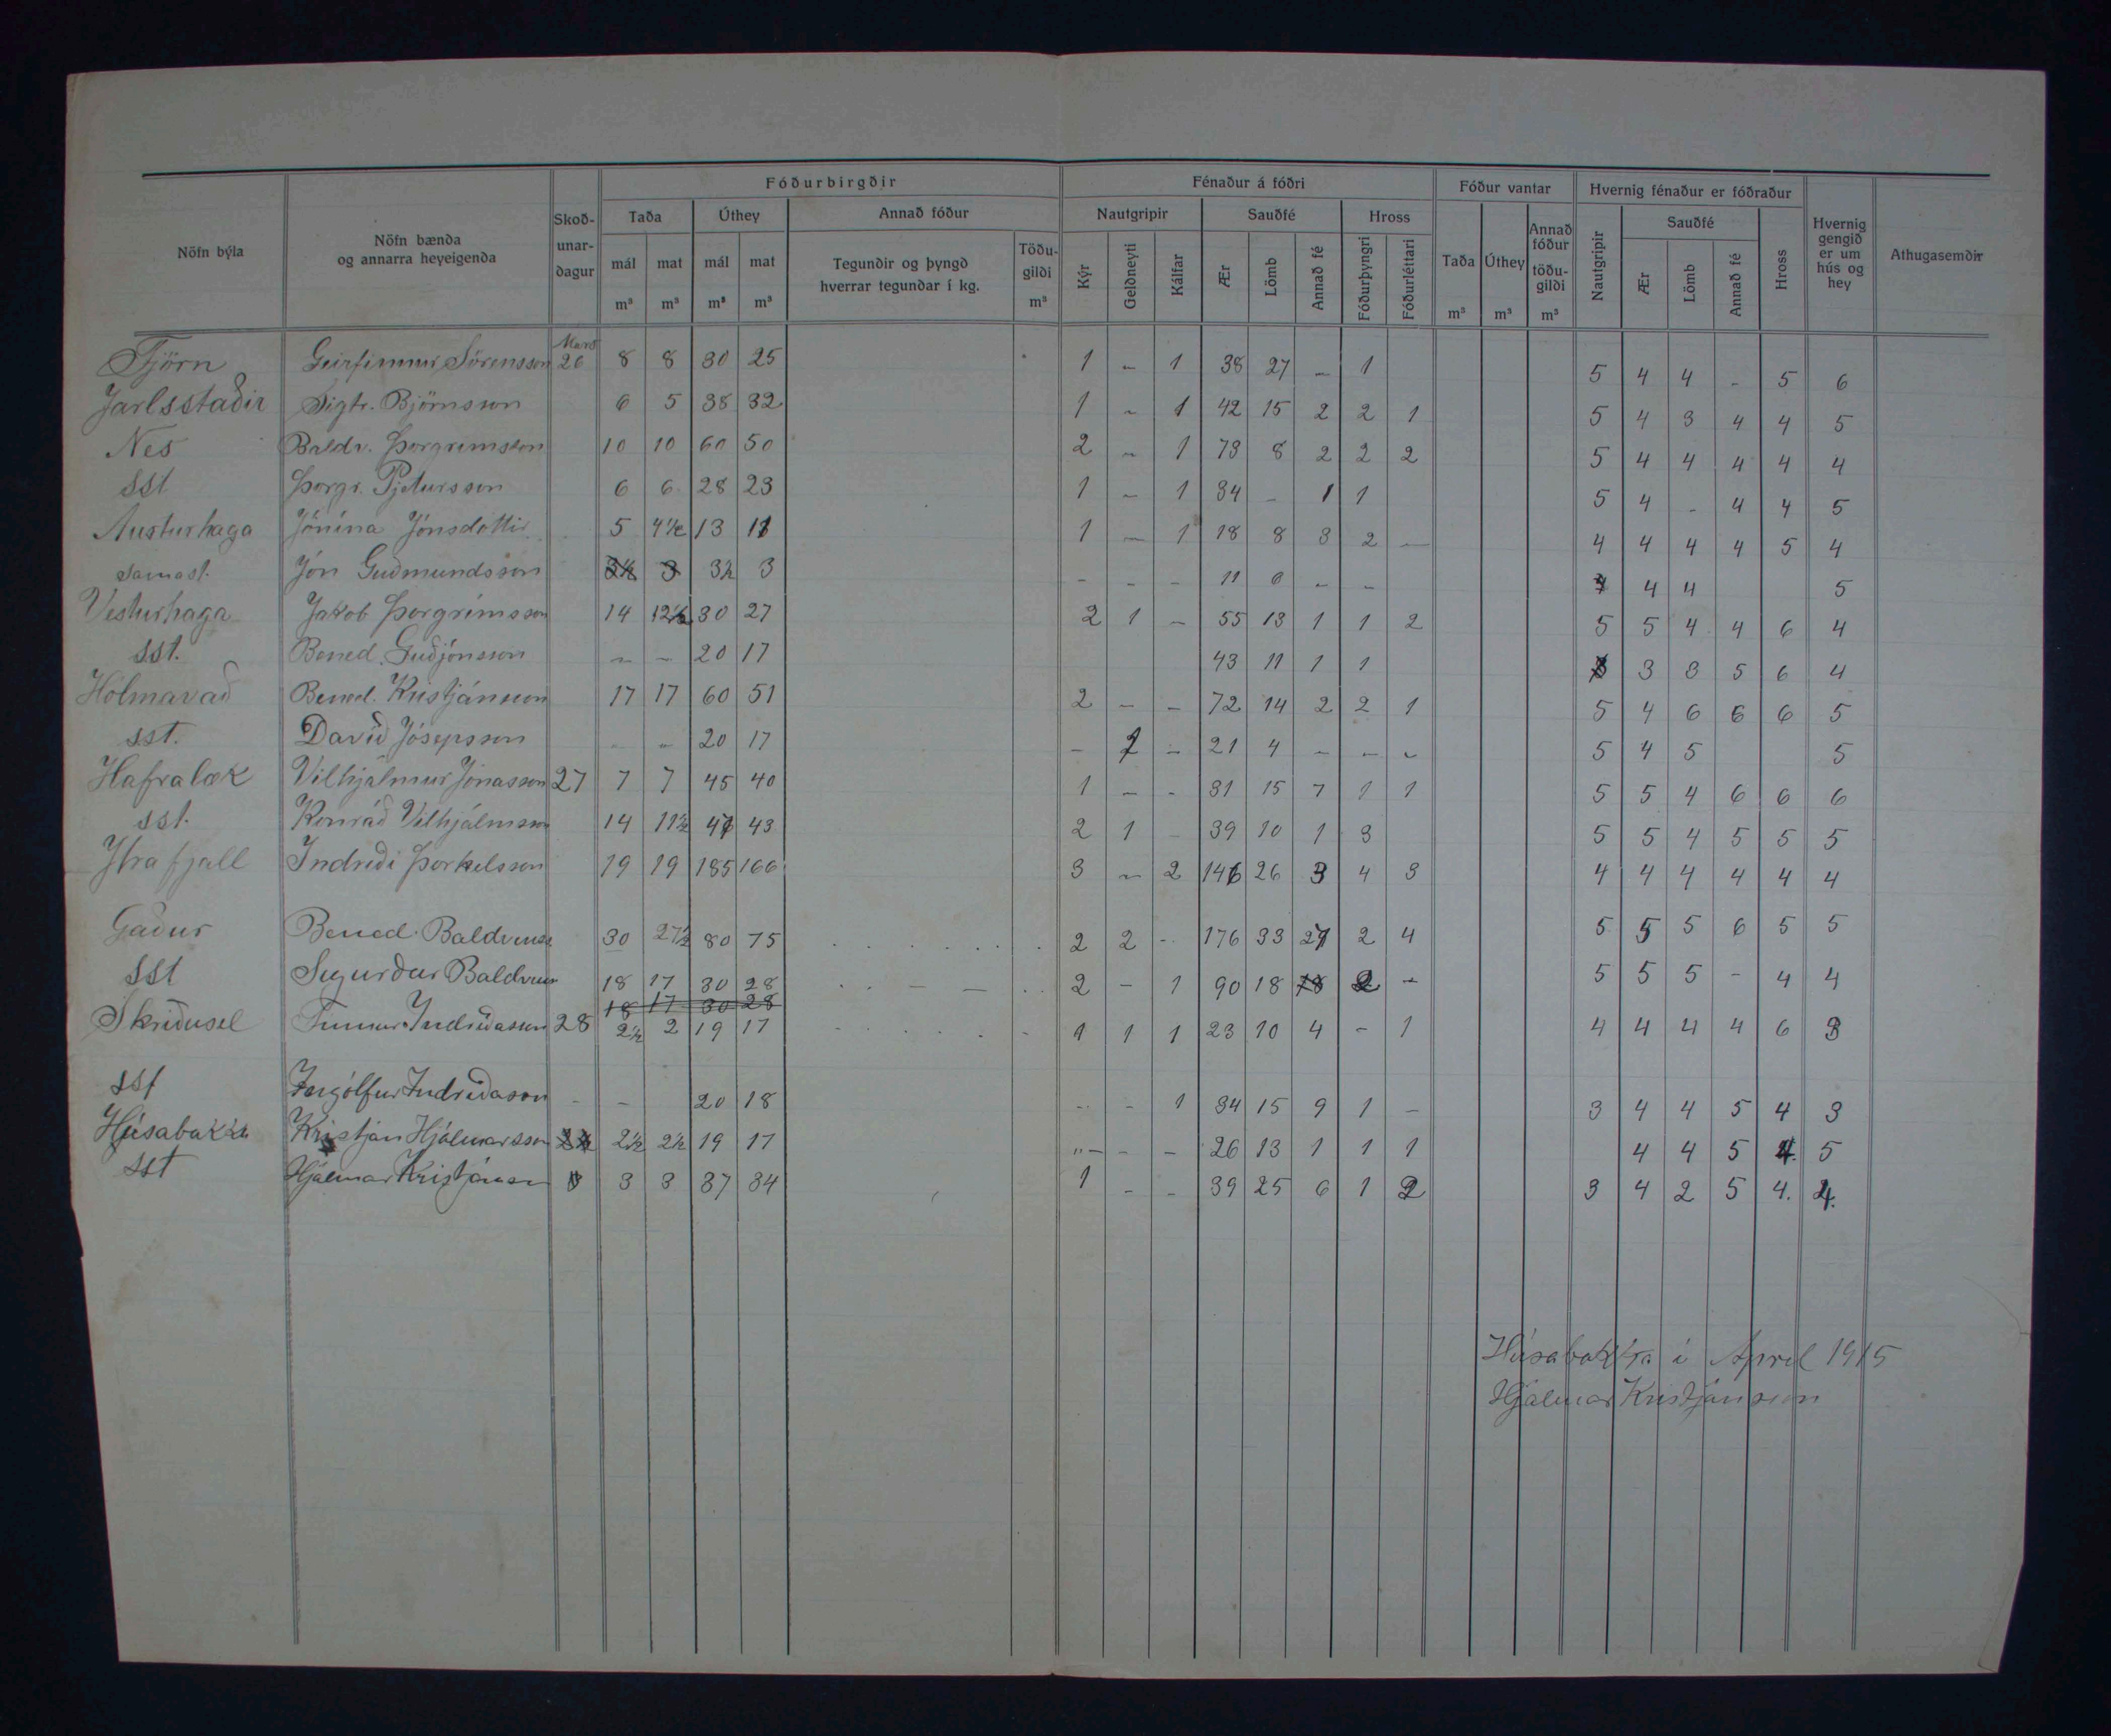 Fóðurbirgðir Fénaður á fóðri Fóður vantar Hvernig fénaður er fóðraður
Nöfn býla Nöfn bænda og annarra heyeigenda Skoð-unar-dagur Taða Úthey Annað fóður Nautgripir Sauðfé Hross Taða Úthey Annað fóður töðu-gildi Nautgripir Sauðfé Hross Hvernig gengið er um hús og hey Athugasemdir
mál mat mál mat Tegundir og þyngd hverrar tegundar í kg. Töðu-gildi Kýr Geldneyti Kálfar Ær Lömb Annað fé Fóðurþyngri Fóðurléttari Ær Lömb Annað fé
m³ m³ m³ m³ m³ m³ m³ m³
Tjörn Geirfinnur Sörensson Mars 26 8 8 30 25 1 - 1 38 27 - 1 5 4 4 - 5 6
Jarlsstaðir Sigtr. Björnsson 6 5 38 32 1 - 1 42 15 2 2 1 5 4 3 4 4 5
Nes Baldv. Þorgrímsson 10 10 60 50 2 - 1 73 8 2 2 2 5 4 4 4 4 4
sst Þorgr. Pjetursson 6 6 28 23 1 - 1 34 - 1 1 5 4 - 4 4 5
Austurhaga Jónína Jónsdóttir 5 4½ 13 11 1 - 1 18 8 3 2 - 4 4 4 4 5 4
samast. Jón Guðmundsson 3½ 3 3½ 3 - - - 11 6 - - 4 4 4 5
Vesturhaga Jakob Þorgrímsson 14 12½ 30 27 2 1 - 55 13 1 1 2 5 5 4 4 6 4
sst. Bened. Guðjónsson - - 20 17 43 11 1 1 3 3 5 6 4
Hólmavað Bened. Kristjánsson 17 17 60 51 2 - - 72 14 2 2 1 5 4 6 6 6 5
sst. Davíð Jósepsson - - 20 17 - - 21 4 - - - 5 4 5 5
Hafralæk Vilhjálmur Jónasson 27 7 7 45 40 1 - - 31 15 7 1 1 5 5 4 6 6 6
sst. Konráð Vilhjálmsson 14 11½ 47 43 2 1 - 39 10 1 3 5 5 4 5 5 5
Ytrafjall Indriði Þorkelsson 19 19 185 166 3 - 2 146 26 3 4 3 4 4 4 4 4 4
Gaður Bened. Baldvinss 30 27½ 80 75 2 2 - 176 33 27 2 4 5 5 5 6 5 5
sst Sigurður Baldvins 18 17 30 28 2 - 1 90 18 18 2 - 5 5 5 - 4 4
18 17 30 28
Skriðusel Finnur Indriðason 28 2½ 2 19 17 1 1 1 23 10 4 - 1 4 4 4 4 6 3
sst Ingólfur Indriðason - - 20 18 - - 1 34 15 9 1 - 3 4 4 5 4 3
Húsabakka Kristján Hjálmarsson 2½ 2½ 19 17 - - - 26 13 1 1 1 4 4 5 4. 5
sst Hjálmar Kristjánsn 3 3 37 34 1 - - 39 25 6 1 2 3 4 2 5 4. 4.
Húsabakka í Apríl 1915
Hjálmar Kristjánsson